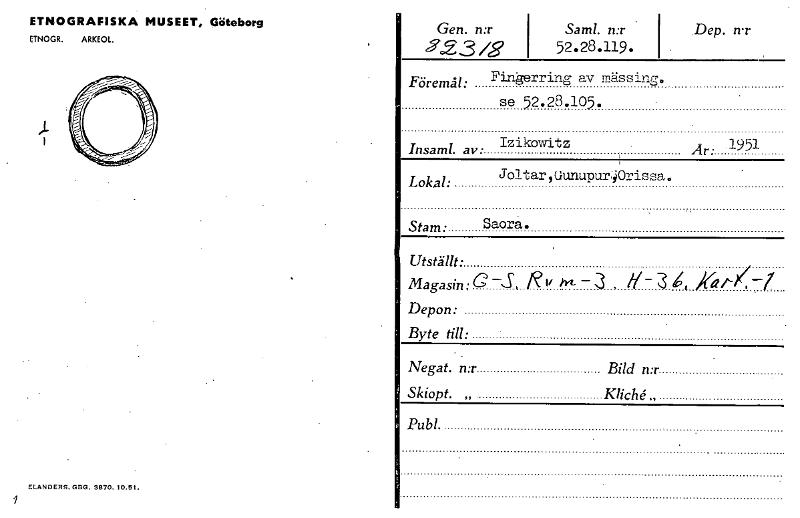 ETNOGRAFISKA MUSEET, Göteborg
ETNOGR. ARKEOL.
1
1
ELANDERS. GBG. 3870. 10.51.
1
Gen. n:r Saml. n:r Dep. n:r
82318 52.28.119.
Föremål: Fingerring av mässing.
se 52.28.105.
Insaml. av: Izikowitz År: 1951
Lokal: Joltar,Gunupur,Orissa.
Stam: Saora.
Utställt:
Magasin: G-S. Rum-3. H-36. Kart.-1
Depon:
Byte till:
Negat. n:r Bild n:r
Skiopt. „ Kliché „
Publ.